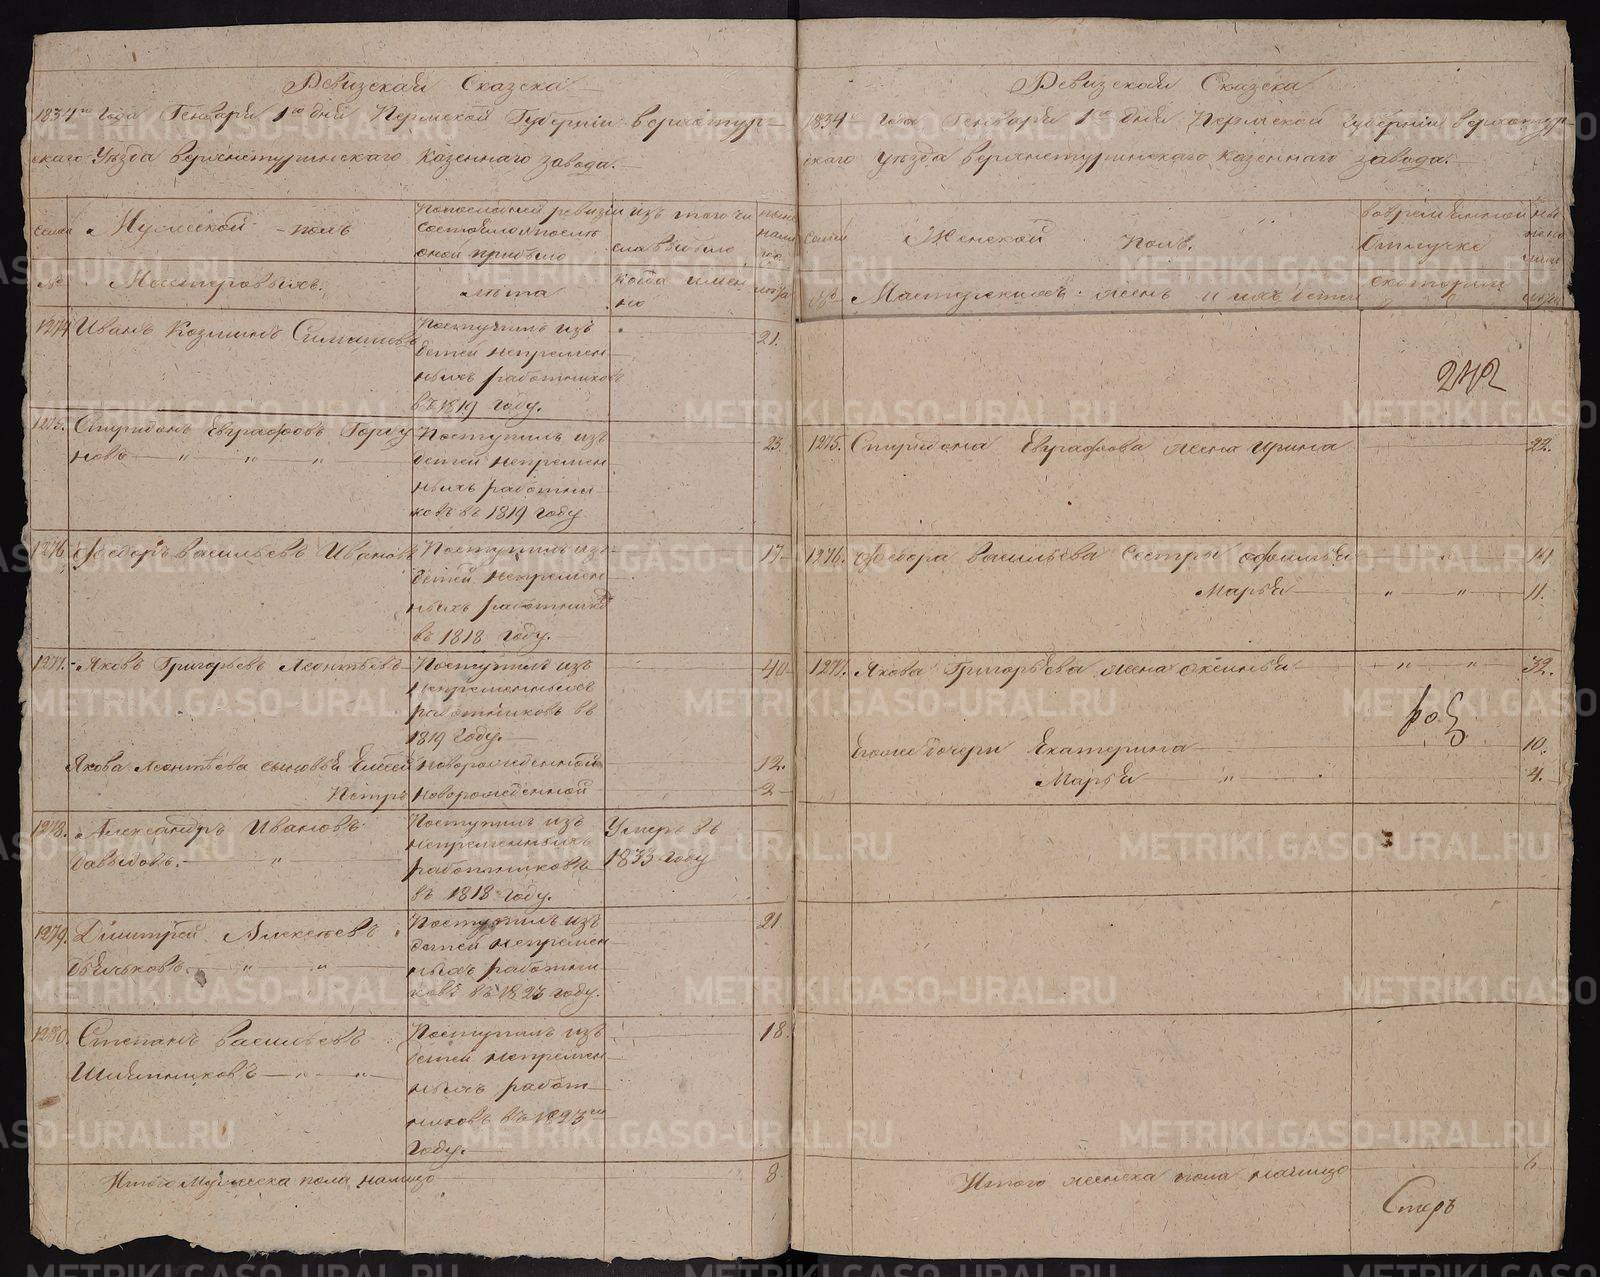 Ревизская Сказска
1834го года Генваря 1го дня Пермской Губернiи верхотур=
скаго Уезда верхнетуринскаго казеннаго завода.
семьи
Мужеской полъ
Попоследней ревизiи
состояло и после
оной прибыло
изъ того чи
сла выбыло
ныне
нали
цо
№
Мастеровыхъ.
лета
когда имен
но
лета
1274
Иванъ Козминъ
Поступилъ изъ
детей непремен
ныхъ работниковъ
въ 1819 году.
21.
1275.
Спиридонъ Евграфовъ Горбу
новъ — " — " — "
Поступилъ изъ
детей непремен
ныхъ работни
ковъ въ 1819 году
23.
1276
Федоръ васильевъ Ивановъ
Поступилъ изъ
детей непремен
ныхъ работников
въ 1818 году.
17
1277.
Яковъ Григорьевъ Леонтьевъ
Поступилъ изъ
непременныхъ
работниковъ въ
1819 году.
40
Якова Леонтьева сыновья Елисей
новорожденной
12.
Петръ
новорожденной
2
1278.
Александръ Ивановъ
давыдовъ. — "
Поступилъ изъ
непременныхъ
работниковъ
въ 1818 году.
Умеръ въ
1833 году
1279.
Дмитрей Алексеевъ
— " — "
Поступилъ изъ
детей непремен
ныхъ работни
ковъ въ 1823 году.
21
1280.
Степанъ васильевъ
— " — "
Поступилъ изъ
детей непремен
ныхъ работ
никовъ въ 1823го
году.
18.
Итого Мужеска пола налицо
8
Ревизская Сказска
1834го года Генваря 1го дня Пермской Губернiи верхотур=
скаго уезда верхнетуринскаго казеннаго завода.
семьи
Женской полъ.
вовременной
отлучке
ны
не на
лицо
№
Мастерскихъ жены и ихъ дети
с котораго
лета
1275.
Спиридона Евграфова жена Ирина
22.
1276.
Федора васильева сестры Офимья
" 14
Марья — " — "
11.
1277.
Якова Григорьева жена Оксинья
" " 32.
егоже дочери Екатерина
10.
Марья — "
4.
Итого женска пола налицо
6
METRIKI.GASO-URAL.RU